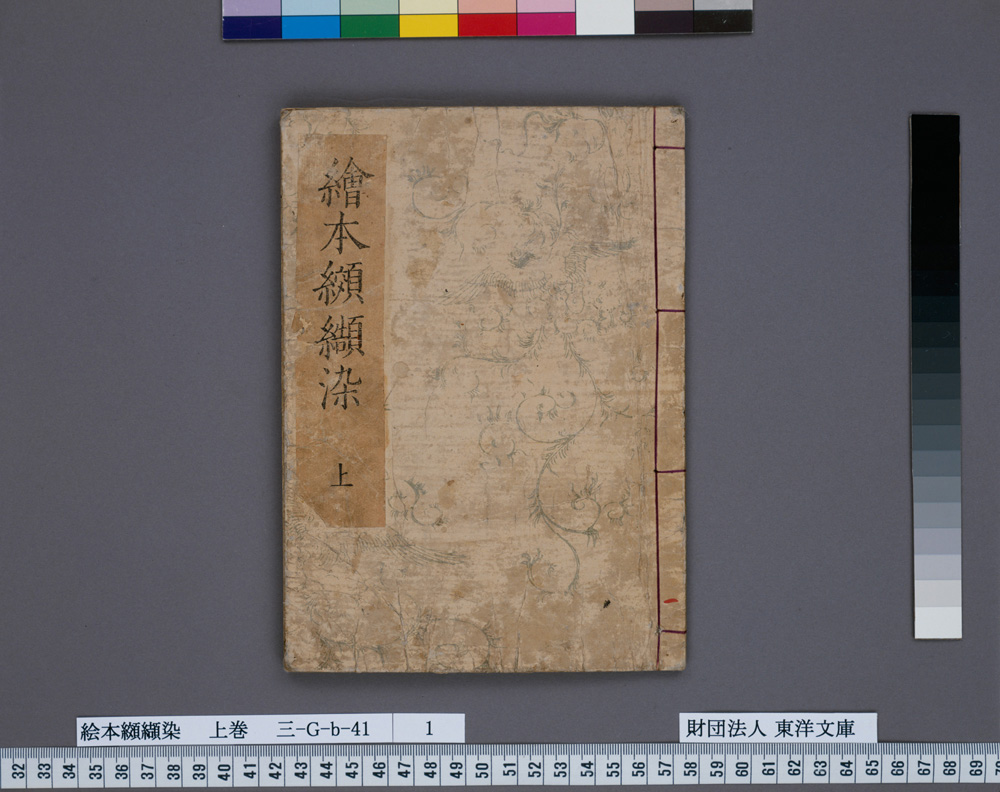 繪本纐纈染
上
絵本纐纈染 上巻 三-G-b-41 1
財団法人 東洋文庫
32 33 34 35 36 37 38 39 40 41 42 43 44 45 46 47 48 49 50 51 52 53 54 55 56 57 58 59 60 61 62 63 64 65 66 67 68 69